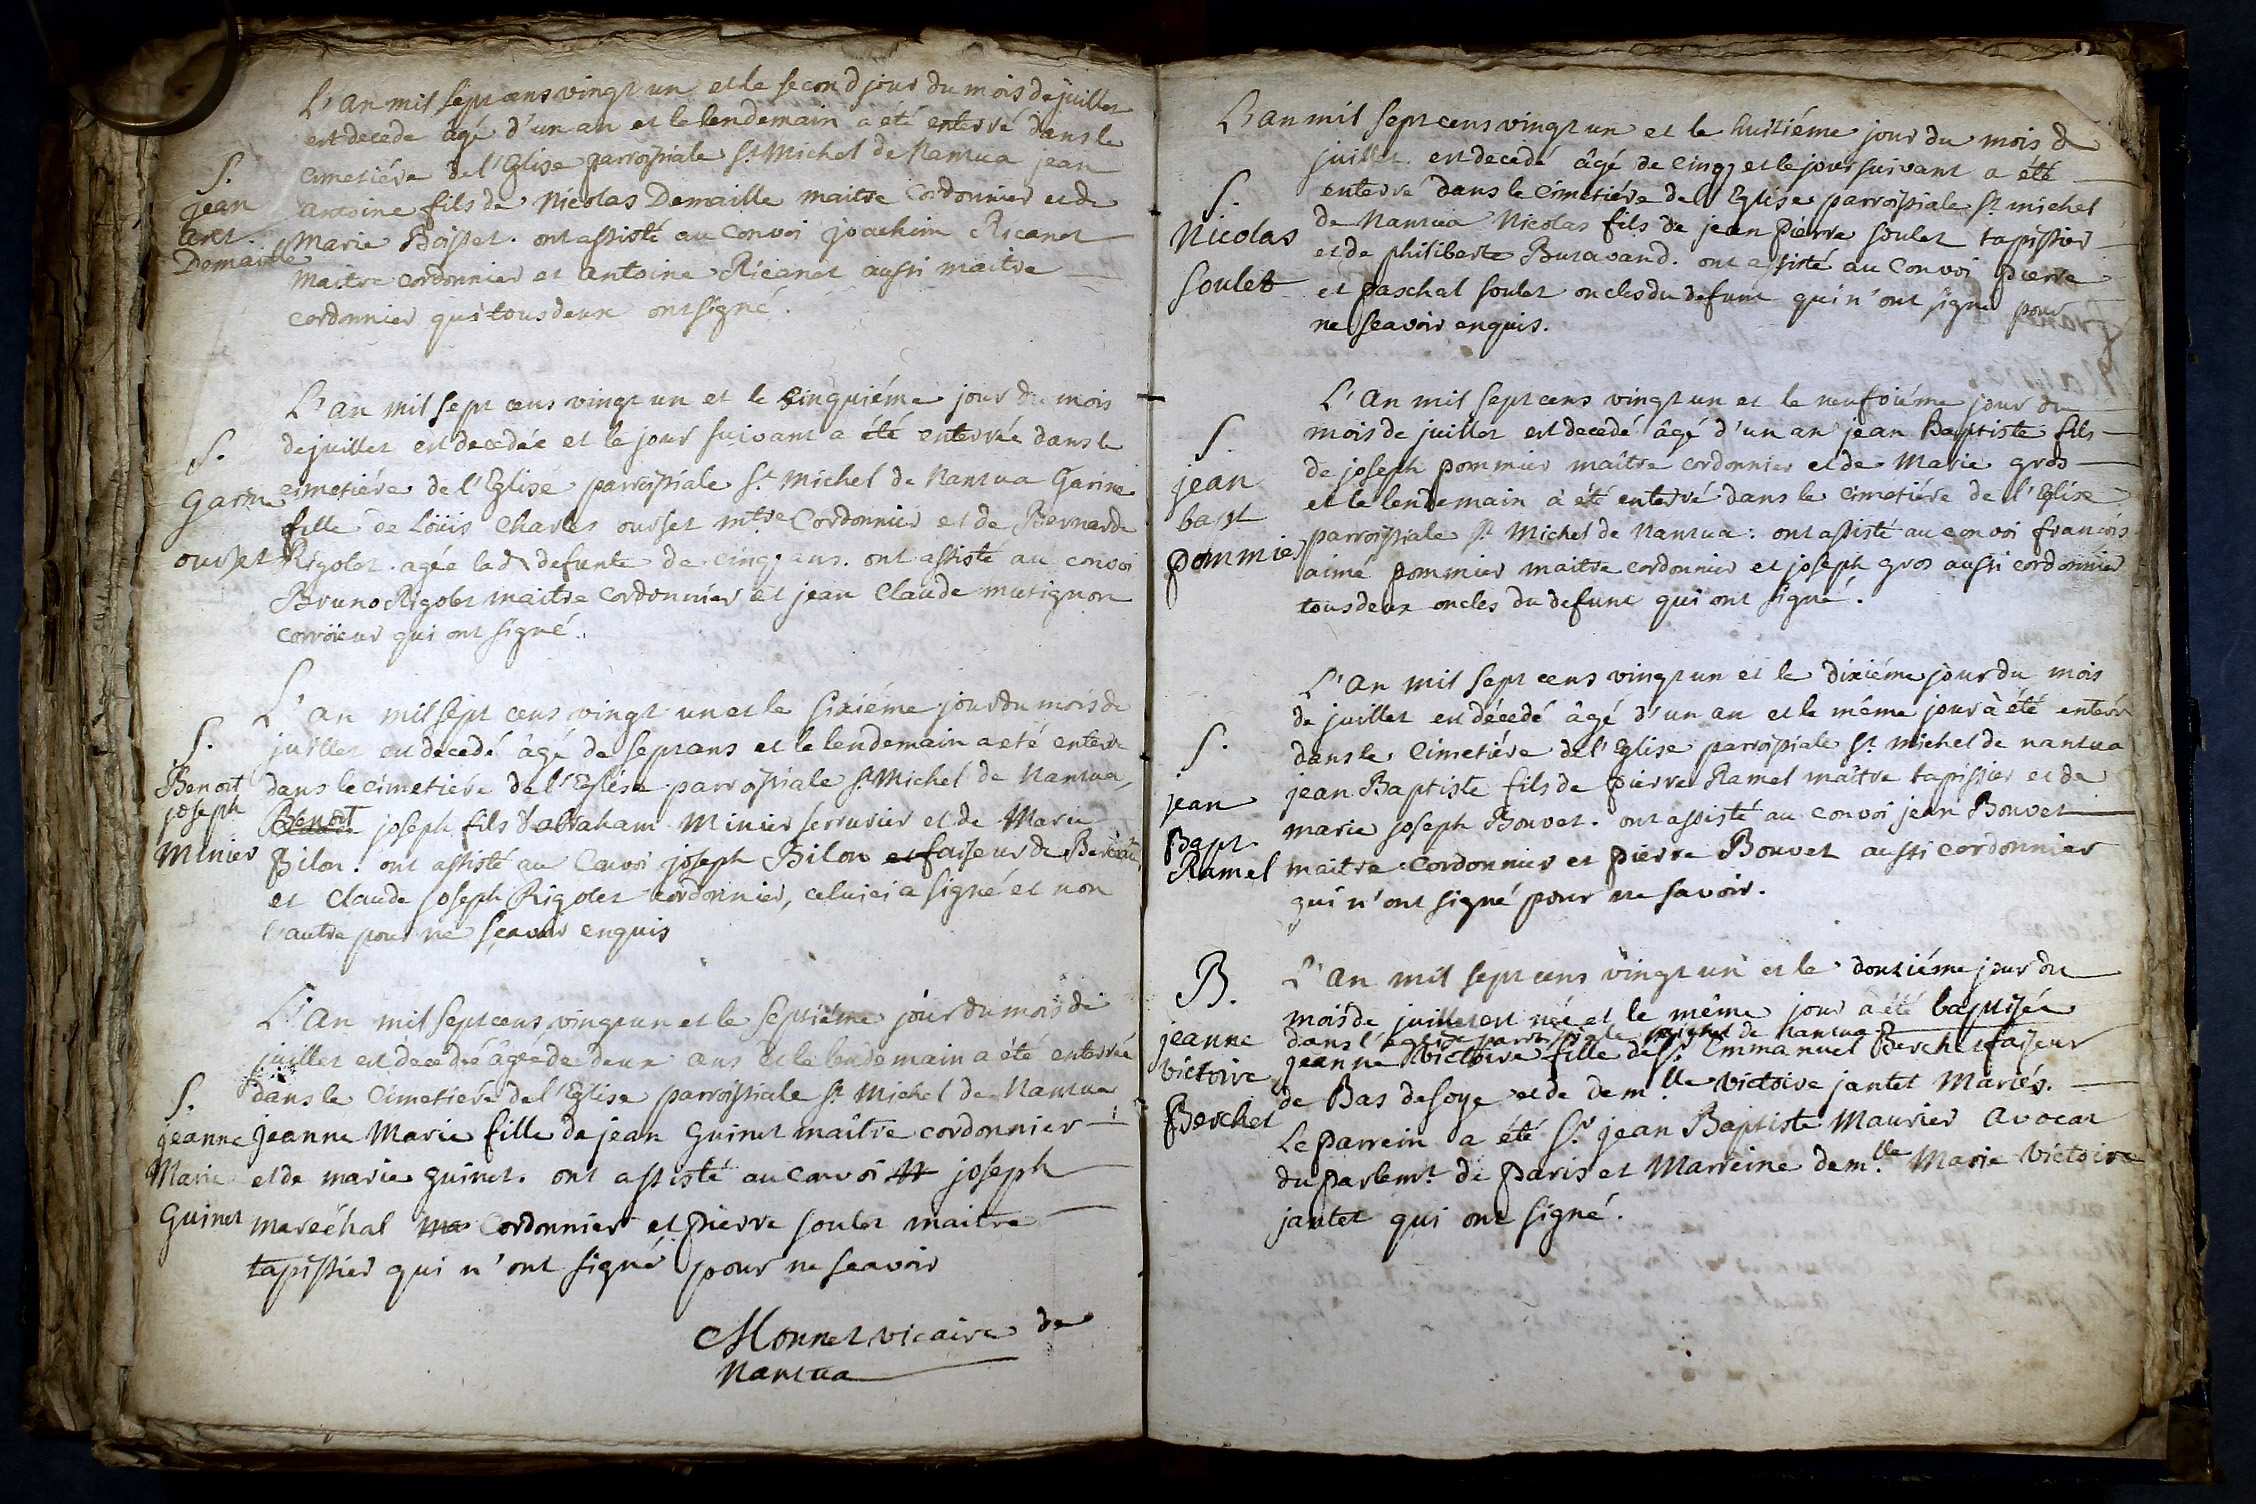 L'an mil sept cens vingt un et le second jour du mois de juillet
est decede âgé d'un an et le lendemain a été enterré dans le
cimetiére de l'Eglise parroissiale St Michel de Nantua jean
antoine fils de Nicolas Demaille maitre Cordonnier et de
Marie Boisset. ont assisté au Convoi joachim Ricanet
Maitre cordonnier et antoine Ricanet aussi maitre
cordonnier qui tous deux ont signé.
S.
jean
ant.
Demaille
L'an mil sept cens vingt un et le cinquiéme jour du mois
de juillet est decedée et le jour suivant a été enterrée dans le
cimetiére de l'Eglise parroissiale St Michel de Nantua Garine
fille de Loüis Charles ourset mtre Cordonnier et de Bernarde
Rigolet. agée lad defunte de cinq ans. ont assisté au convoi
Bruno Rigolet maitre Cordonnier et jean Claude musignon
corroieur qui ont signé.
S.
Garine
ourset
L'an mil sept cens vingt un et le sixiéme jour du mois de
juillet est decedé âgé de sept ans et le lendemain a eté enterré
dans le cimetiére de l'Eglise parroissiale St Michel de Nantua,
Benoit joseph fils d'abraham Minier serrurier et de Marie
Bilon. ont assisté au Convoi joseph Bilon et faiseur de
et Claude joseph Rigolet cordonnier, celuici a signé et non
l'autre pour ne sçavoir enquis
S.
Benoit
joseph
Minier
L'An mil sept cens vingt un et le septiéme jour du mois de
juillet est decedée âgée de deux ans et le lendemain a été enterrée
dans le Cimetiére de l'Eglise parroissiale St Michel de Nantua
jeanne Marie fille de jean Guinet maître cordonnier
et de marie guinet. ont assisté au convoi joseph
maréchal Cordonnier et pierre soulet maitre
tapissier qui n'ont signé pour ne scavoir
S.
jeanne
Marie
Guinet
Monnet vicaire de
Nantua
L'an mil sept cens vingt un et le huitiéme jour du mois de
juillet est decedé âgé de cinq et le jour suivant a été
enterré dans le Cimetiére de l'Eglise parroissiale St michel
de Nantua Nicolas fils de jean pierre soulet tapissier
et de philiberte Buravand. ont assisté au Convoi pierre
et paschal soulet oncles du defunt qui n'ont signé pour
ne scavoir enquis.
S.
Nicolas
soulet
L'An mil sept cens vingt un et le neufviéme jour du
mois de juillet est decedé âgé d'un an jean Baptiste fils
de joseph pommier maître cordonnier et de Marie gros
et le lendemain a été enterré dans le cimetiére de l'Eglise
parroissiale St Michel de Nantua: ont assisté au convoi francois
aimé pommier maitre cordonnier et joseph gros aussi cordonnier
tous deux oncles du defunt qui ont signé.
S
jean
bapt
pommier
L'An mil sept cens vingt un et le dixiéme jour du mois
de juillet est décedé âgé d'un an et le même jour à été enterré
dans le Cimetiére de l'Eglise parroissiale St michel de nantua
jean Baptiste fils de pierre Ramel maître tapissier et de
marie joseph Bouvet. ont assisté au convoi jean Bouvet
maitre Cordonnier et pierre Bouvet aussi cordonnier
qui n'ont signé pour ne savoir.
S.
jean
Bapt
Ramel
L'An mil sept cens vingt un et le douziéme jour du
mois de juillet est née et le même jour a été baptisée
dans l'eglise parroissiale St michel de Nantua
jeanne victoire fille de Sr Emmanuel Berchet faiseur
de Bas de soye et de dem.lle victoire jantet Mariés.
Le parrein a été Sr jean Baptiste Maurier Avocat
du parlemt de paris et Marreine dem.lle Marie victoire
jantet qui ont signé.
B.
jeanne
victoire
Berchet